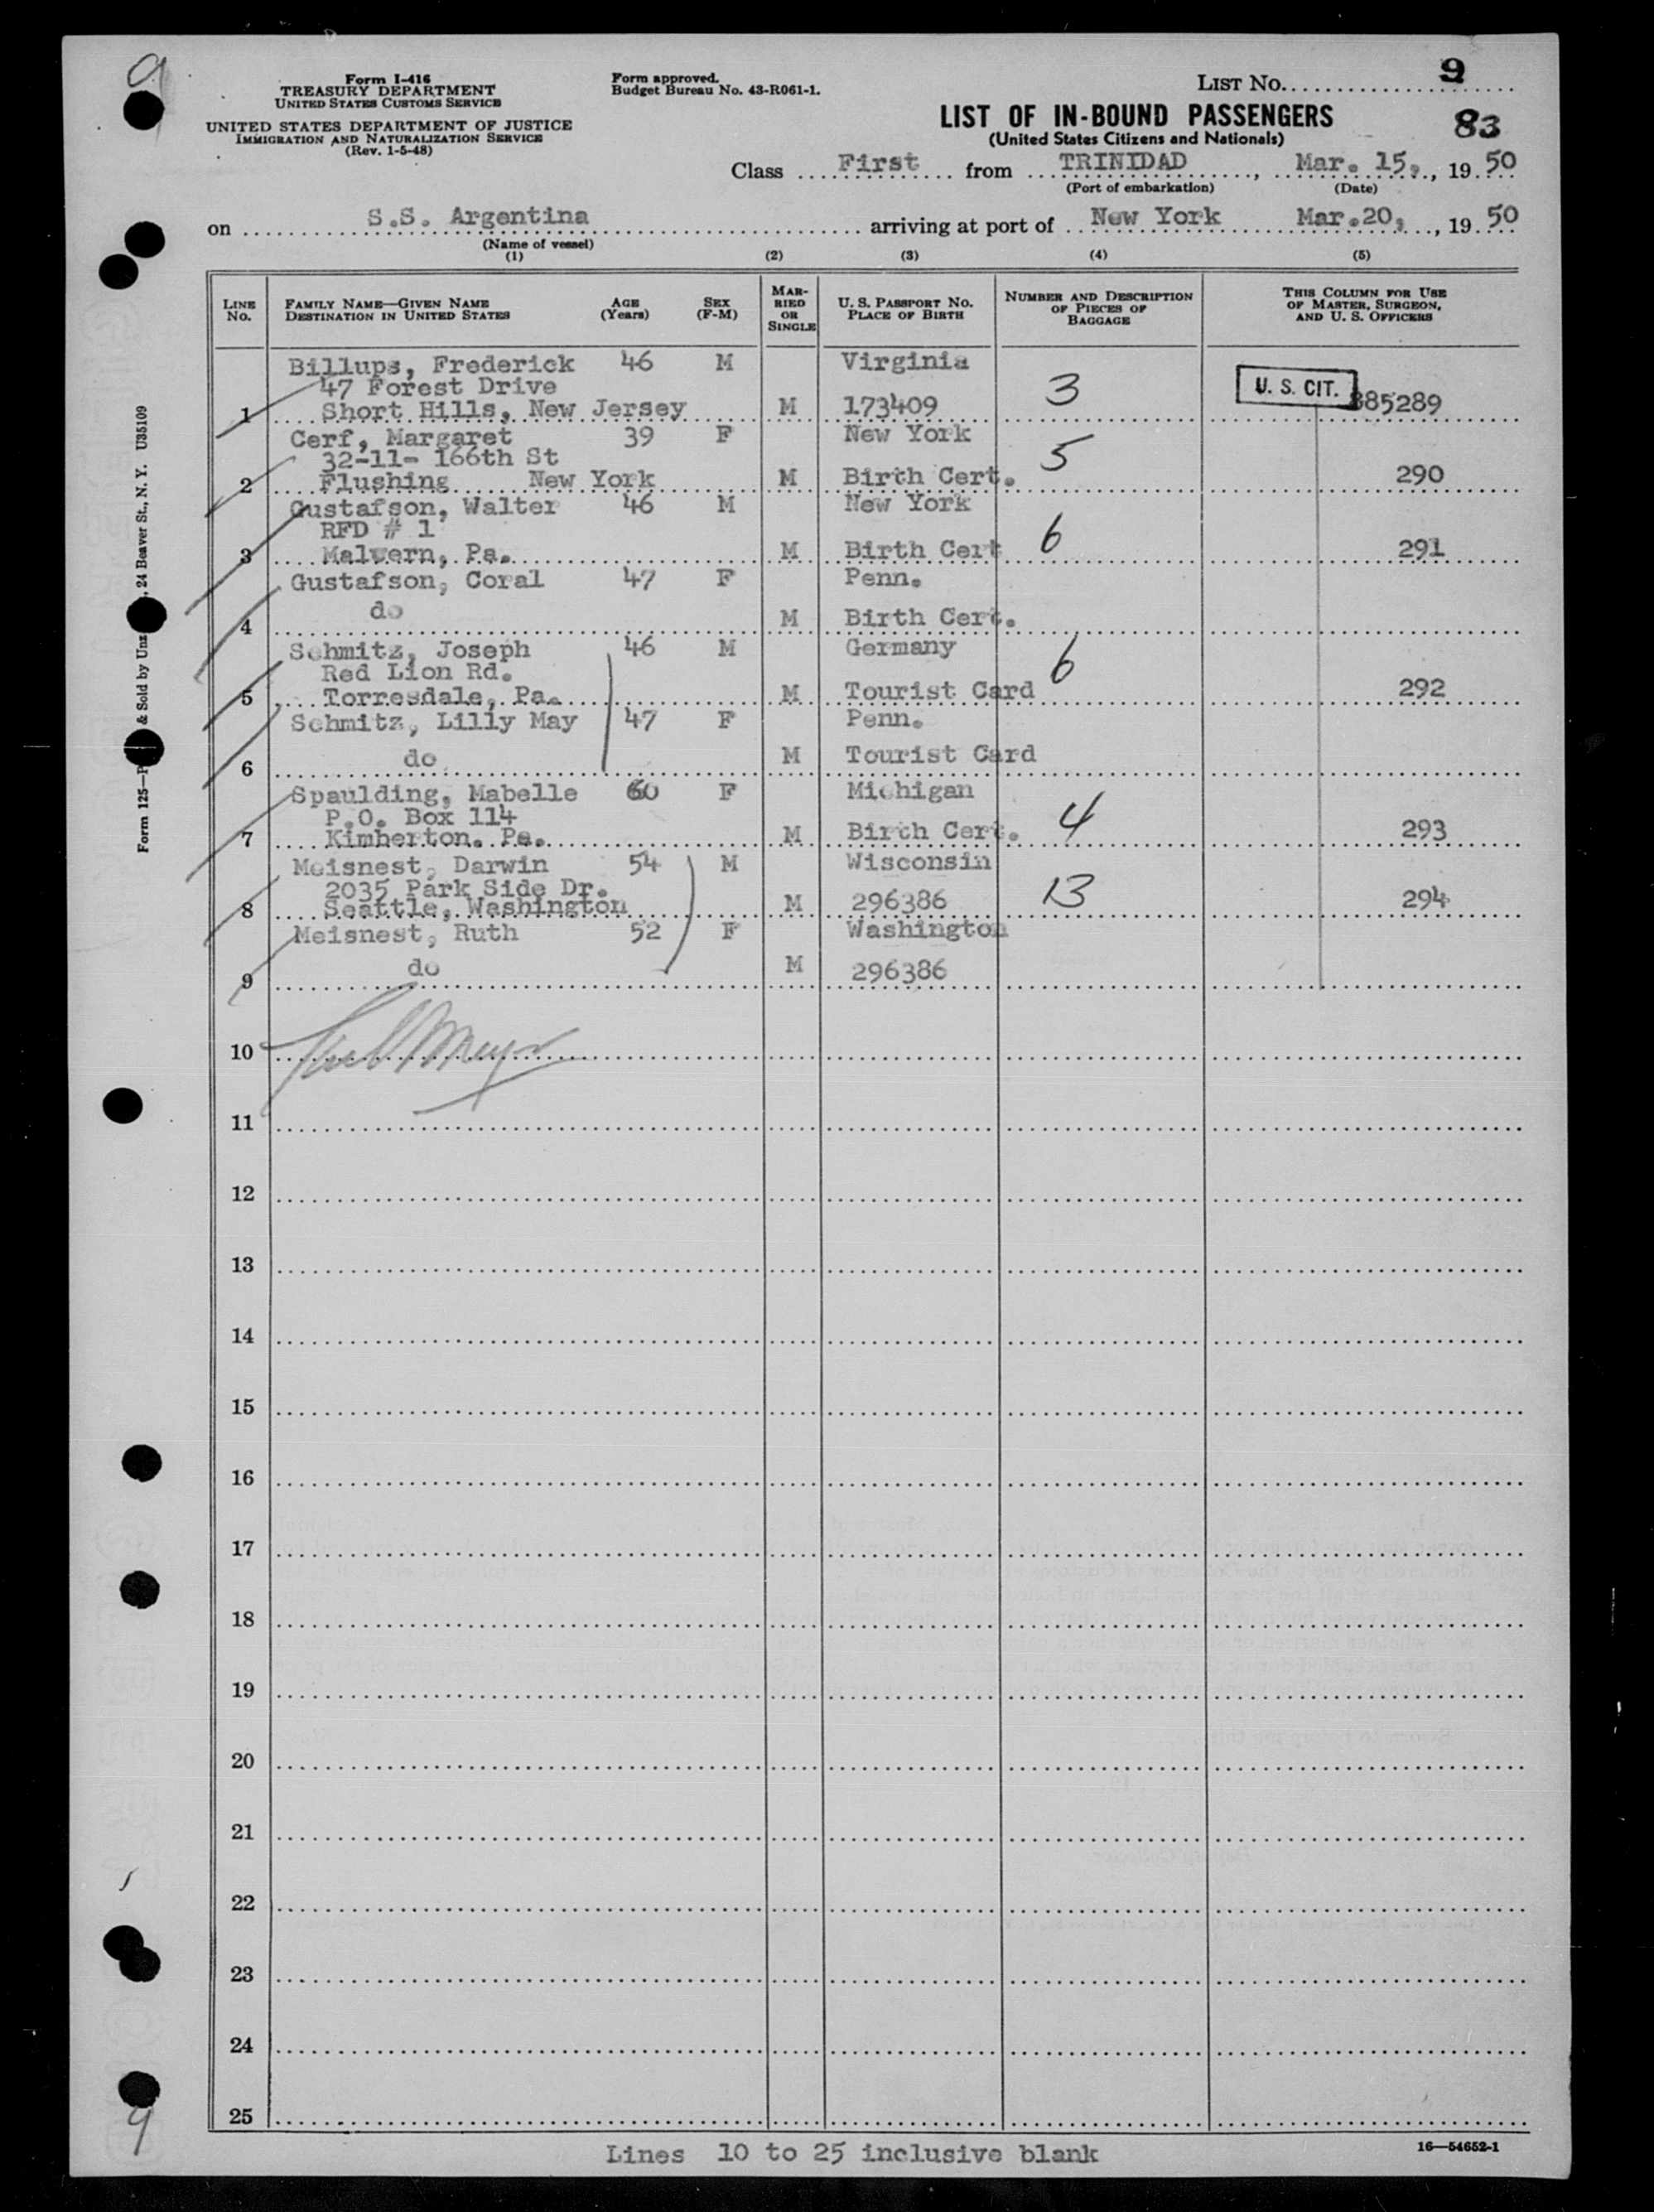 9
Form I-416
TREASURY DEPARTMENT
UNITED STATES CUSTOMS SERVICE
UNITED STATES DEPARTMENT OF JUSTICE
IMMIGRATION AND NATURALIZATION SERVICE
(Rev. 1-5-48)
Form approved.
Budget Bureau No. 43-R061-1.
LIST No. 9
LIST OF IN-BOUND PASSENGERS
83
(United States Citizens and Nationals)
Class First from TRINIDAD, Mar. 15, , 19 50
(Port of embarkation) (Date)
on S.S. Argentina arriving at port of New York Mar.20, , 19 50
(Name of vessel)
(1) (2) (3) (4) (5)
LINE No. FAMILY NAME—GIVEN NAME DESTINATION IN UNITED STATES AGE (Years) SEX (F-M) MARRIED OR SINGLE U. S. PASSPORT No. PLACE OF BIRTH NUMBER AND DESCRIPTION OF PIECES OF BAGGAGE THIS COLUMN FOR USE OF MASTER, SURGEON, AND U. S. OFFICERS
Billups, Frederick 46 M Virginia
47 Forest Drive 3 U. S. CIT.
1 Short Hills, New Jersey M 173409 885289
Cerf, Margaret 39 F New York
32-11- 166th St 5
2 Flushing New York M Birth Cert. 290
Gustafson, Walter 46 M New York
RFD # 1 6
3 Malvern, Pa. M Birth Cert 291
Gustafson, Coral 47 F Penn.
do
4 M Birth Cert.
Schmitz, Joseph 46 M Germany
Red Lion Rd. 6
5 Torresdale, Pa. M Tourist Card 292
Schmitz, Lilly May 47 F Penn.
do M Tourist Card
6
Spaulding, Mabelle 60 F Michigan
P.O. Box 114 4
7 Kimberton. Pa. M Birth Cert. 293
Meisnest, Darwin 54 M Wisconsin
2035 Park Side Dr. 13
8 Seattle, Washington M 296386 294
Meisnest, Ruth 52 F Washington
do M 296386
9
10
11
12
13
14
15
16
17
18
19
20
21
22
23
24
25
Lines 10 to 25 inclusive blank
16—54652-1
Form 125—P & Sold by Unz , 24 Beaver St., N. Y. U35109
9